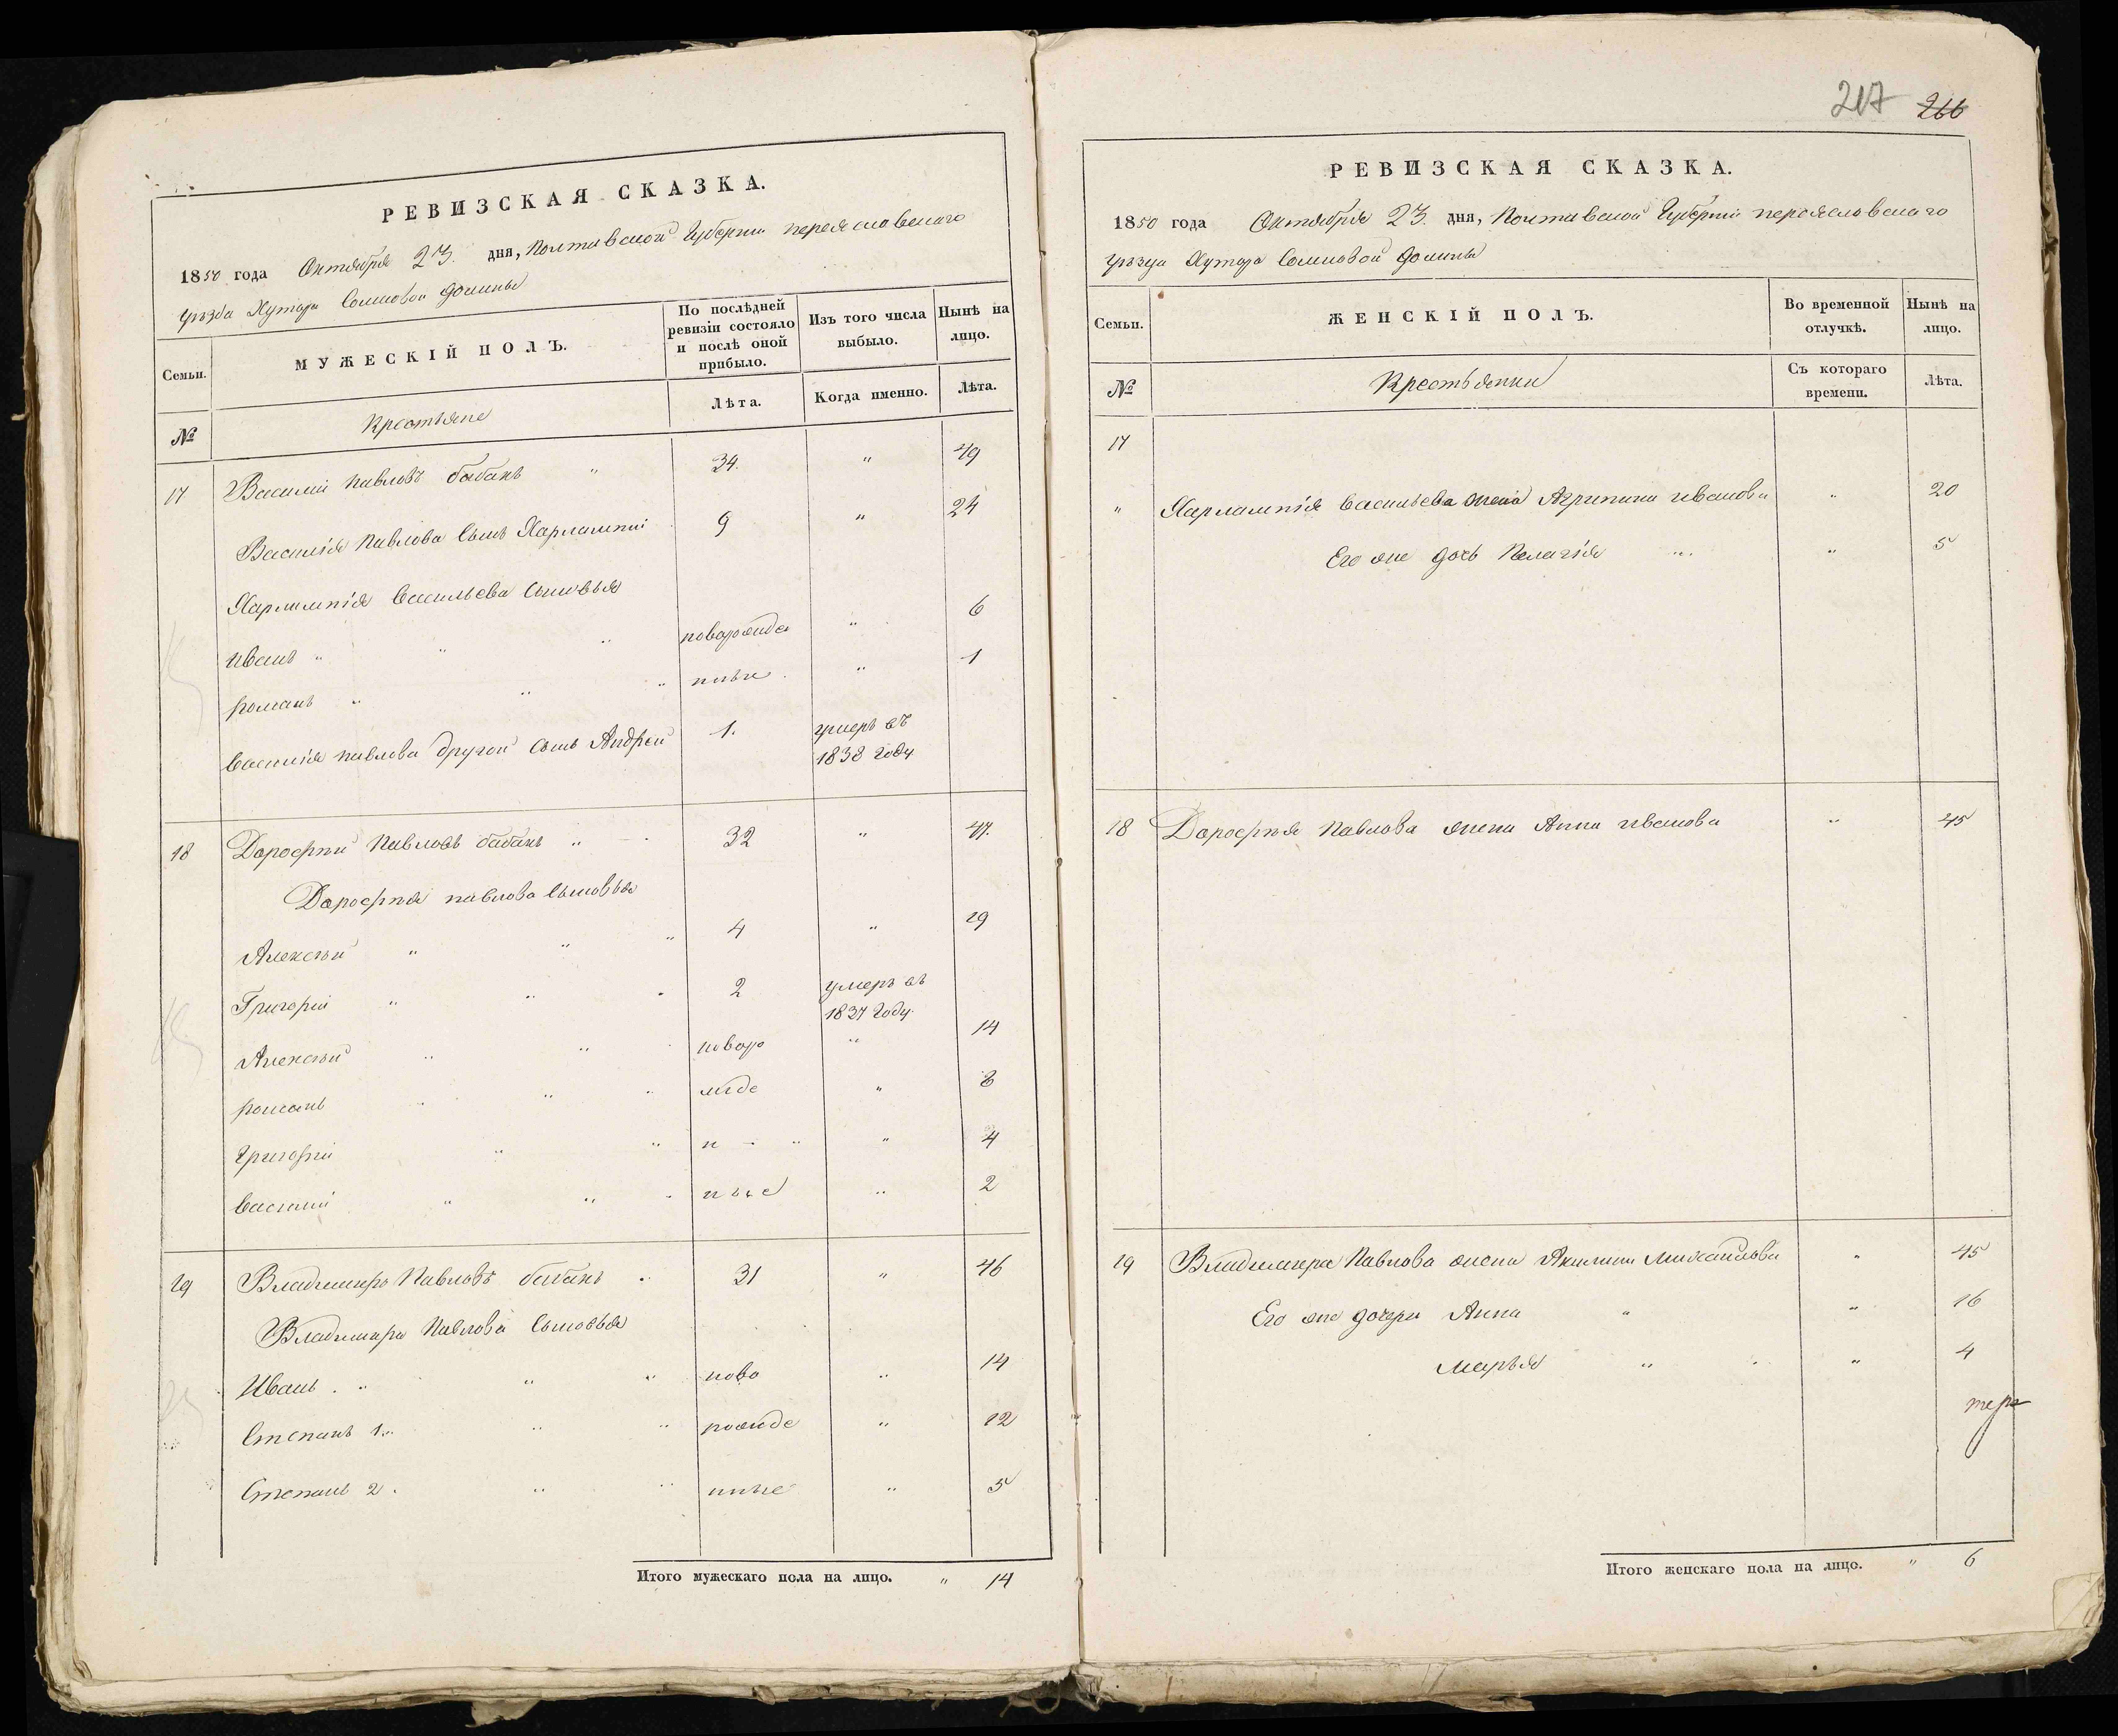 РЕВИЗСКАЯ СКАЗКА.
1850 года Октября 23. дня, Полтавской Губерніи переясловскаго
уѣзда Хутора Сомковой долины
Семьи.
МУЖЕСКІЙ ПОЛЪ.
По послѣдней ревизіи состояло и послѣ оной прибыло.
Изъ того числа выбыло.
Нынѣ на лицо.
№
Крестьяне
Лѣта.
Когда именно.
Лѣта.
17 Василій Павловъ бабакъ " 34. " 49
Василія Павлова Сынъ Харлампій 9 " 24
Харлампія Васильева Сыновья
Иванъ " " " новорожде " 6
романъ " " " нные " 1
Василія павлова другой Сынъ Андрей 1. умеръ въ
1838 году
18 Дарофтй Павловъ бабакъ " 32 " 47.
Дарофтя павлова Сыновья
Алексѣй " " " 4 " 19
Григорій " " " 2 умеръ въ
1837 году
Алексѣй " " " новоро " 14
романъ " " " жде " 8
григорій " " н " " 4
василій " " " ные " 2
19 Владимиръ Павловъ бабакъ " 31 " 46
Владимира Павлова Сыновья
Иванъ " " " ново " 14
Степанъ 1. " " рожде " 12
Степанъ 2. " " нные " 5
Итого мужескаго пола на лицо. " 14
217 266
РЕВИЗСКАЯ СКАЗКА.
1850 года Октября 23. дня, Полтавской Губерніи переясловскаго
уѣзда Хутора Сомковой долины
Семьи.
ЖЕНСКІЙ ПОЛЪ.
Во временной отлучкѣ.
Нынѣ на лицо.
№
Крестьянки
Съ котораго времени.
Лѣта.
17
" Харлампія Васильева жена Агрипина иванова " 20
Его же дочь Пелагія " " 5
18 Дарофтя Павлова жена Анна иванова " 45
19 Владимира Павлова жена Акилина Михайлова " 45
Его же дочери Анна " " 16
Марья " " 4
Итого женскаго пола на лицо. " 6